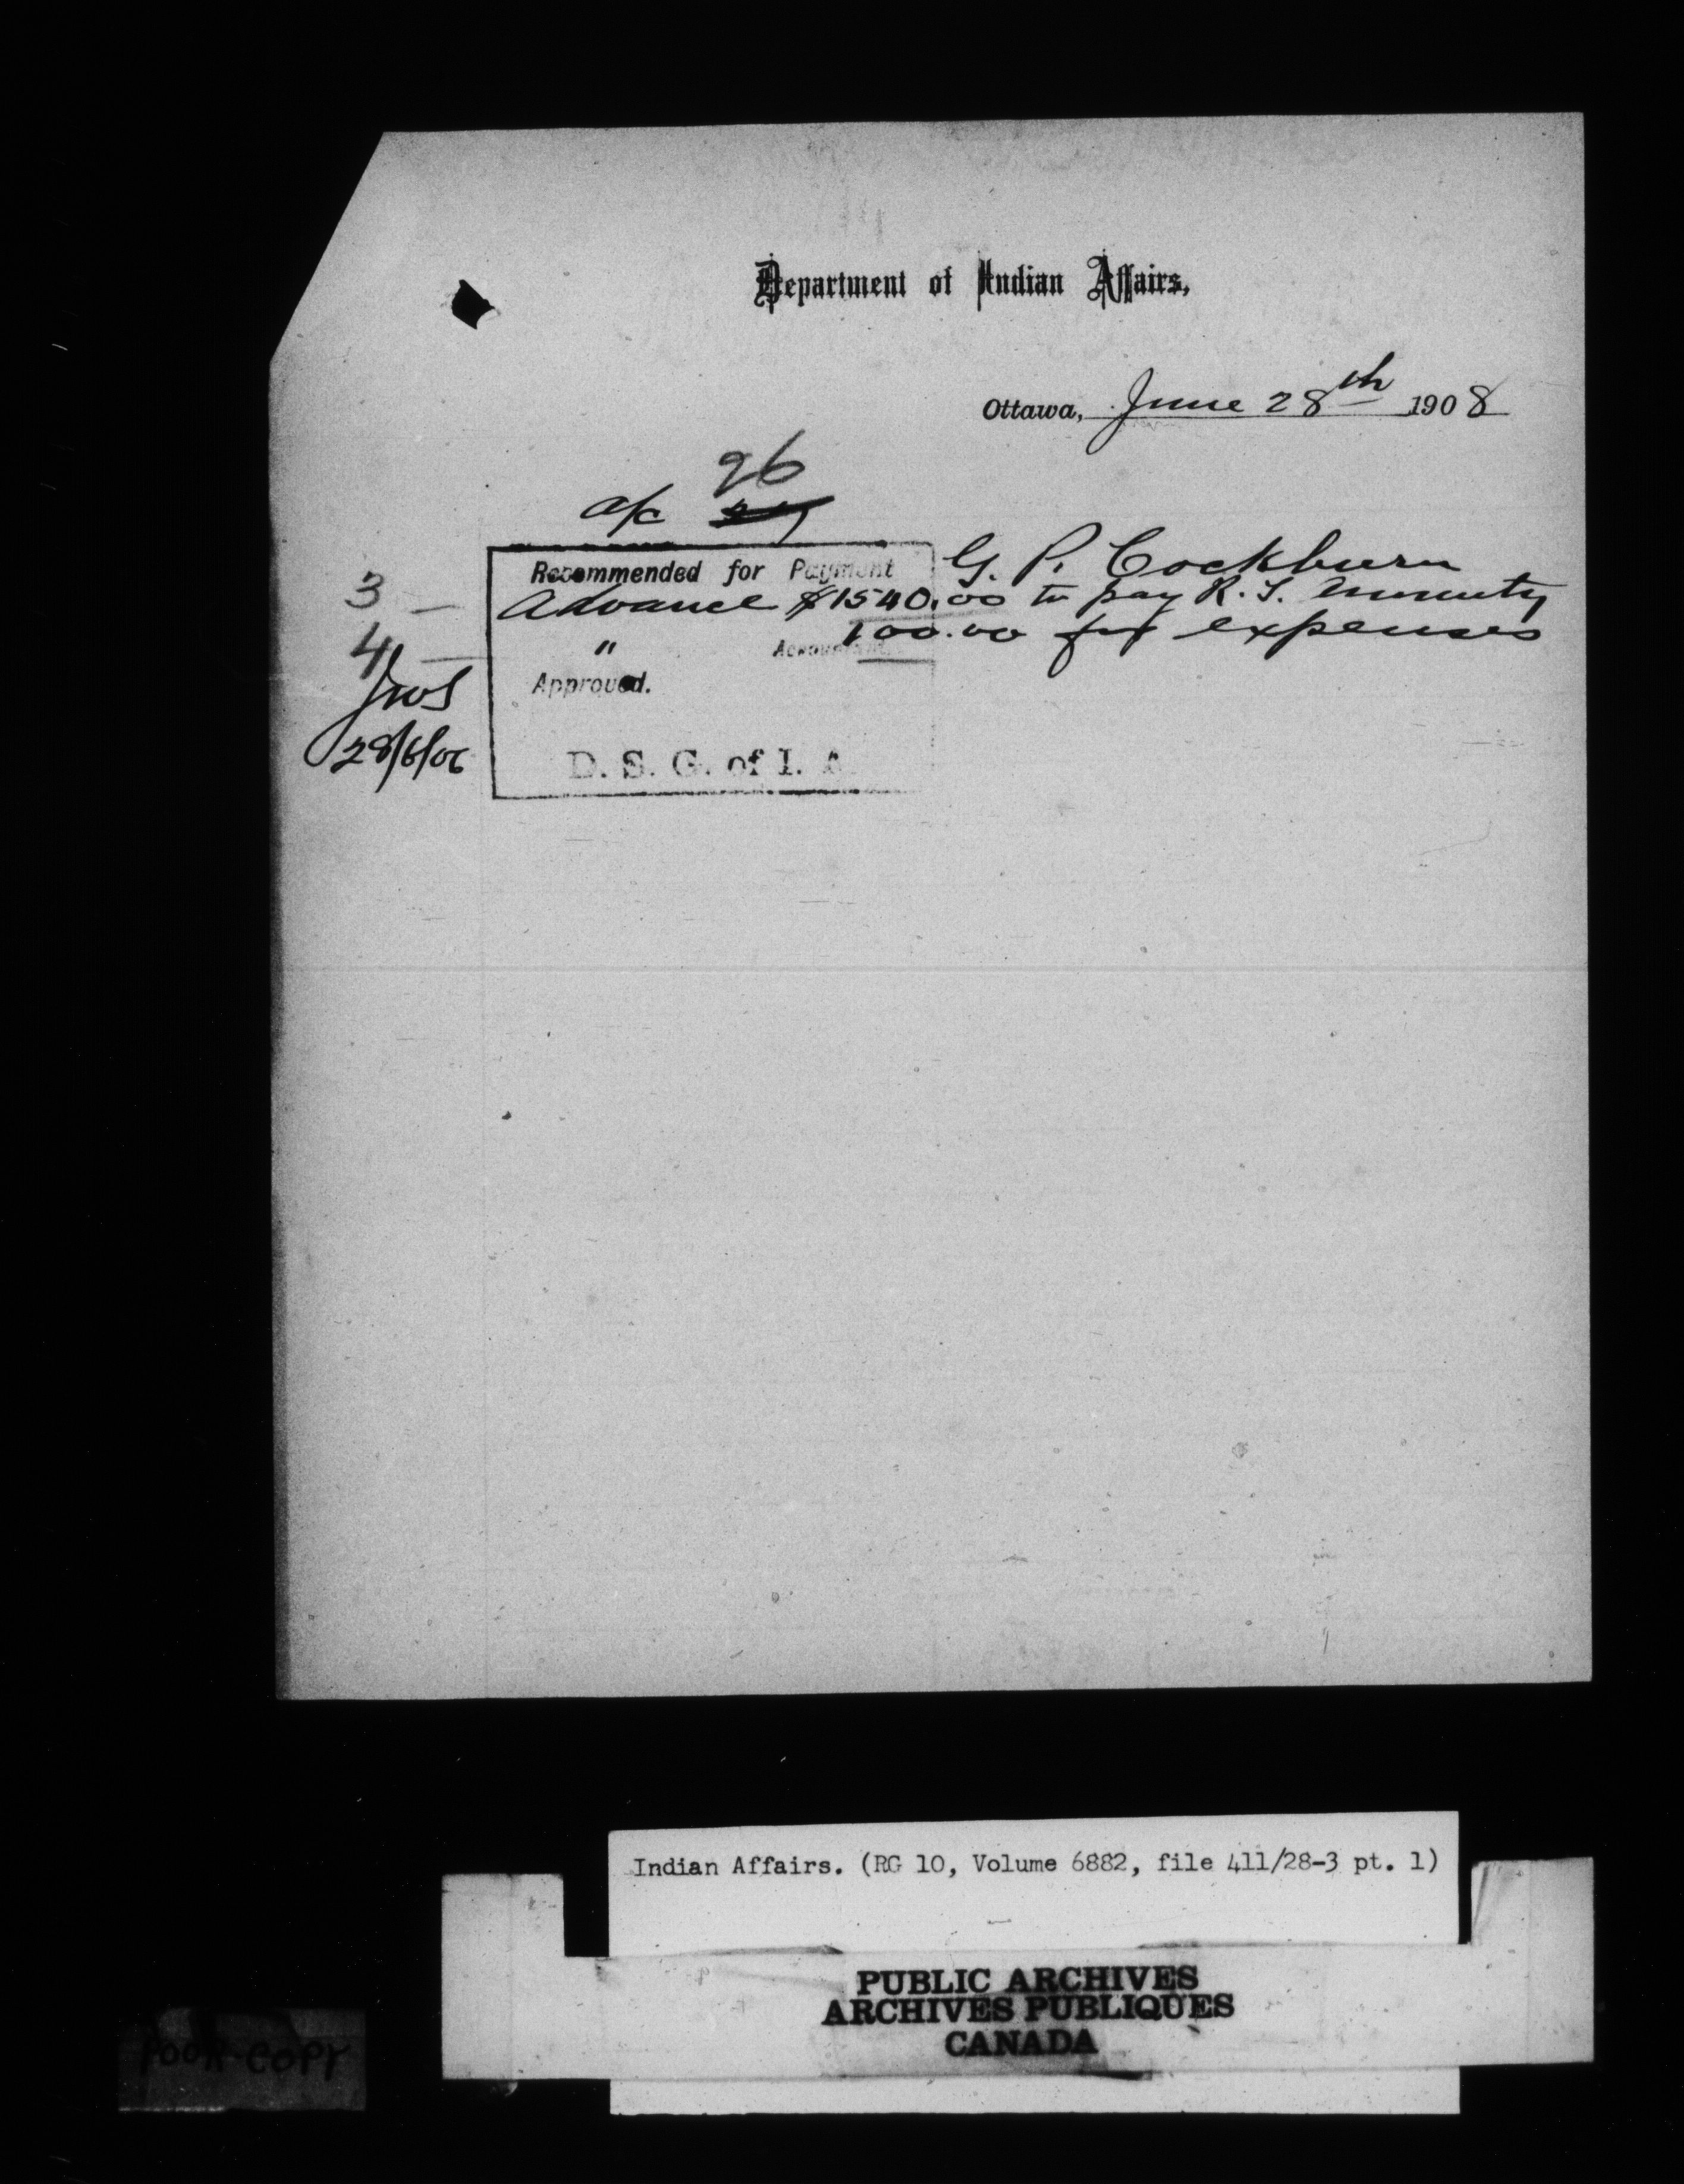 Department of Indian Affairs,
Ottawa, June 28th 1908
96
a/c
Recommended for Payment G. P. Cockburn
3 - Advance $1540.00 to pay R. T. Annuity
4 - " 100.00 for expenses
Accountant.
Approved.
28/6/06
D. S. G. of I. A.
Indian Affairs. (RG 10, Volume 6882, file 411/28-3 pt. 1)
PUBLIC ARCHIVES
ARCHIVES PUBLIQUES
CANADA
POOR COPY